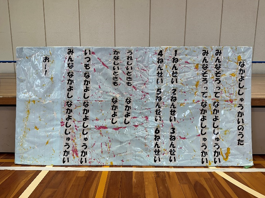 なかよししゅうかいのうた
みんなそろって なかよししゅうかい
みんなそろって なかよししゅうかい
1ねんせい 2ねんせい 3ねんせい
4ねんせい 5ねんせい 6ねんせい
うれしいときも なかよし
かなしいときも なかよし
いつもなかよし なかよししゅうかい
みんななかよし なかよししゅうかい
おー!